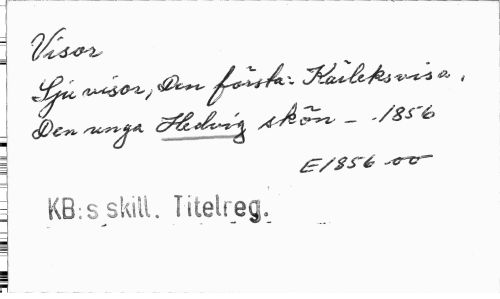 Visor
Sju visor, Den första: Kärleksvisa.
Den unga Hedvig skön – .1856
E1856 oo
KB:s skill. Titelreg.